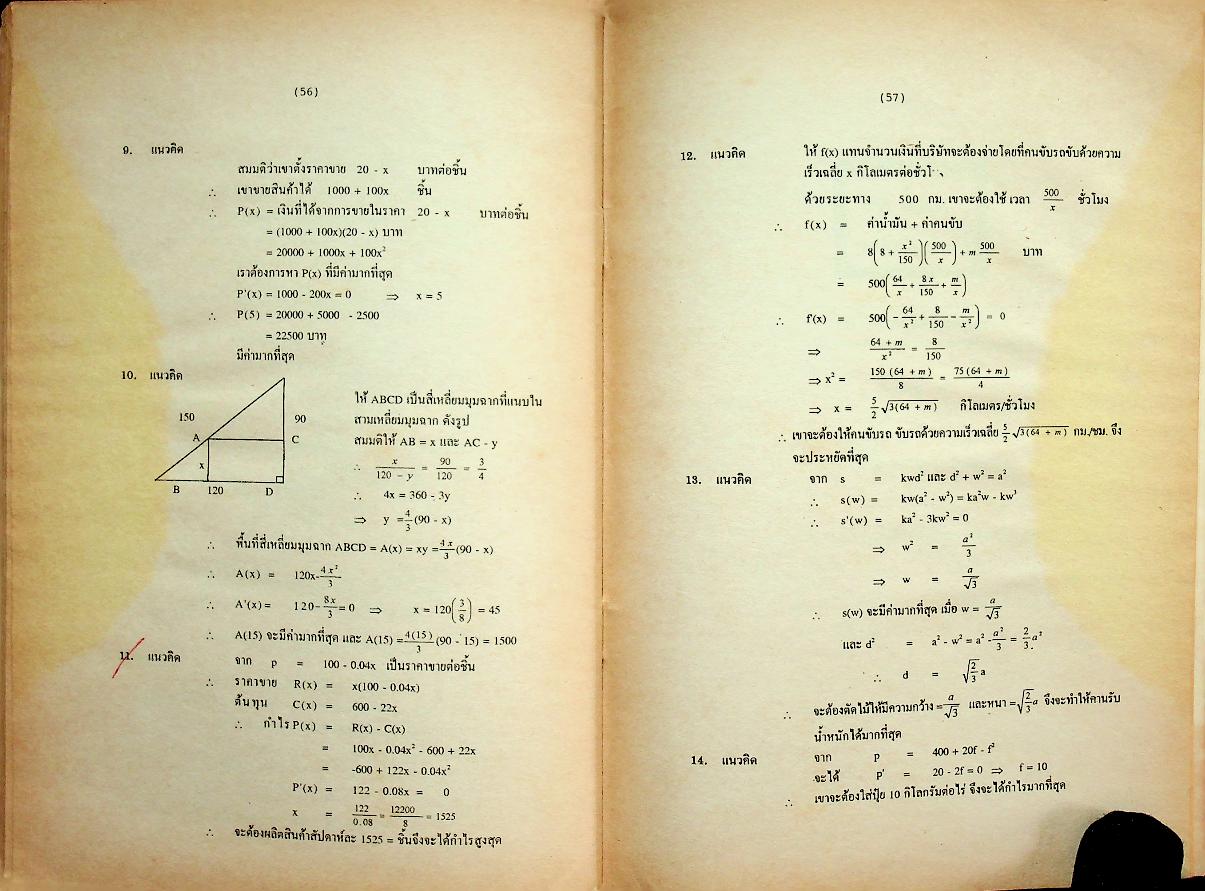 (56)
9. แนวคิด
สมมติว่าเขาตั้งราคาขาย 20 - x บาทต่อชิ้น
∴ เขาขายสินค้าได้ 1000 + 100x ชิ้น
∴ P(x) = เงินที่ได้จากการขายในราคา 20 - x บาทต่อชิ้น
= (1000 + 100x)(20 - x) บาท
= 20000 + 1000x + 100x²
เราต้องการหา P(x) ที่มีค่ามากที่สุด
P'(x) = 1000 - 200x = 0 ⇒ x = 5
∴ P(5) = 20000 + 5000 - 2500
= 22500 บาท
มีค่ามากที่สุด
10. แนวคิด
150
90
A
C
x
B 120 D
ให้ ABCD เป็นสี่เหลี่ยมมุมฉากที่แนบใน
สามเหลี่ยมมุมฉาก ดังรูป
สมมติให้ AB = x และ AC - y
∴ x/(120 - y) = 90/120 = 3/4
∴ 4x = 360 - 3y
⇒ y = 4/3 (90 - x)
∴ พื้นที่สี่เหลี่ยมมุมฉาก ABCD = A(x) = xy = 4x/3 (90 - x)
∴ A(x) = 120x - 4x²/3
∴ A'(x) = 120 - 8x/3 = 0 ⇒ x = 120(3/8) = 45
∴ A(15) จะมีค่ามากที่สุด และ A(15) = 4(15)/3 (90 - 15) = 1500
11. แนวคิด จาก p = 100 - 0.04x เป็นราคาขายต่อชิ้น
∴ ราคาขาย R(x) = x(100 - 0.04x)
ต้นทุน C(x) = 600 - 22x
∴ กำไร P(x) = R(x) - C(x)
= 100x - 0.04x² - 600 + 22x
= -600 + 122x - 0.04x²
P'(x) = 122 - 0.08x = 0
x = 122/0.08 = 12200/8 = 1525
∴ จะต้องผลิตสินค้าสัปดาห์ละ 1525 = ชิ้นจึงจะได้กำไรสูงสุด
(57)
12. แนวคิด ให้ f(x) แทนจำนวนเงินที่บริษัทจะต้องจ่ายโดยที่คนขับรถขับด้วยความ
เร็วเฉลี่ย x กิโลเมตรต่อชั่วโ
ด้วยระยะทาง 500 กม. เขาจะต้องใช้ เวลา 500/x ชั่วโมง
∴ f(x) = ค่าน้ำมัน + ค่าคนขับ
= 8(8 + x²/150)(500/x) + m 500/x บาท
= 500(64/x + 8x/150 + m/x)
∴ f'(x) = 500(-64/x² + 8/150 - m/x²) = 0
⇒ (64 + m)/x² = 8/150
⇒ x² = 150(64 + m)/8 = 75(64 + m)/4
⇒ x = 5/2 √3(64 + m) กิโลเมตร/ชั่วโมง
∴ เขาจะต้องให้คนขับรถ ขับรถด้วยความเร็วเฉลี่ย 5/2 √3(64 + m) กม./ชม. จึง
จะประหยัดที่สุด
13. แนวคิด จาก s = kwd² และ d² + w² = a²
∴ s(w) = kw(a² - w²) = ka²w - kw³
∴ s'(w) = ka² - 3kw² = 0
⇒ w² = a²/3
⇒ w = a/√3
∴ s(w) จะมีค่ามากที่สุด เมื่อ w = a/√3
และ d² = a² - w² = a² - a²/3 = 2/3 a²
∴ d = √(2/3) a
∴ จะต้องตัดไม้ให้มีความกว้าง = a/√3 และหนา = √(2/3) a จึงจะทำให้คานรับ
น้ำหนักได้มากที่สุด
14. แนวคิด จาก p = 400 + 20f - f²
จะได้ p' = 20 - 2f = 0 ⇒ f = 10
∴ เขาจะต้องใส่ปุ๋ย 10 กิโลกรัมต่อไร่ จึงจะได้กำไรมากที่สุด